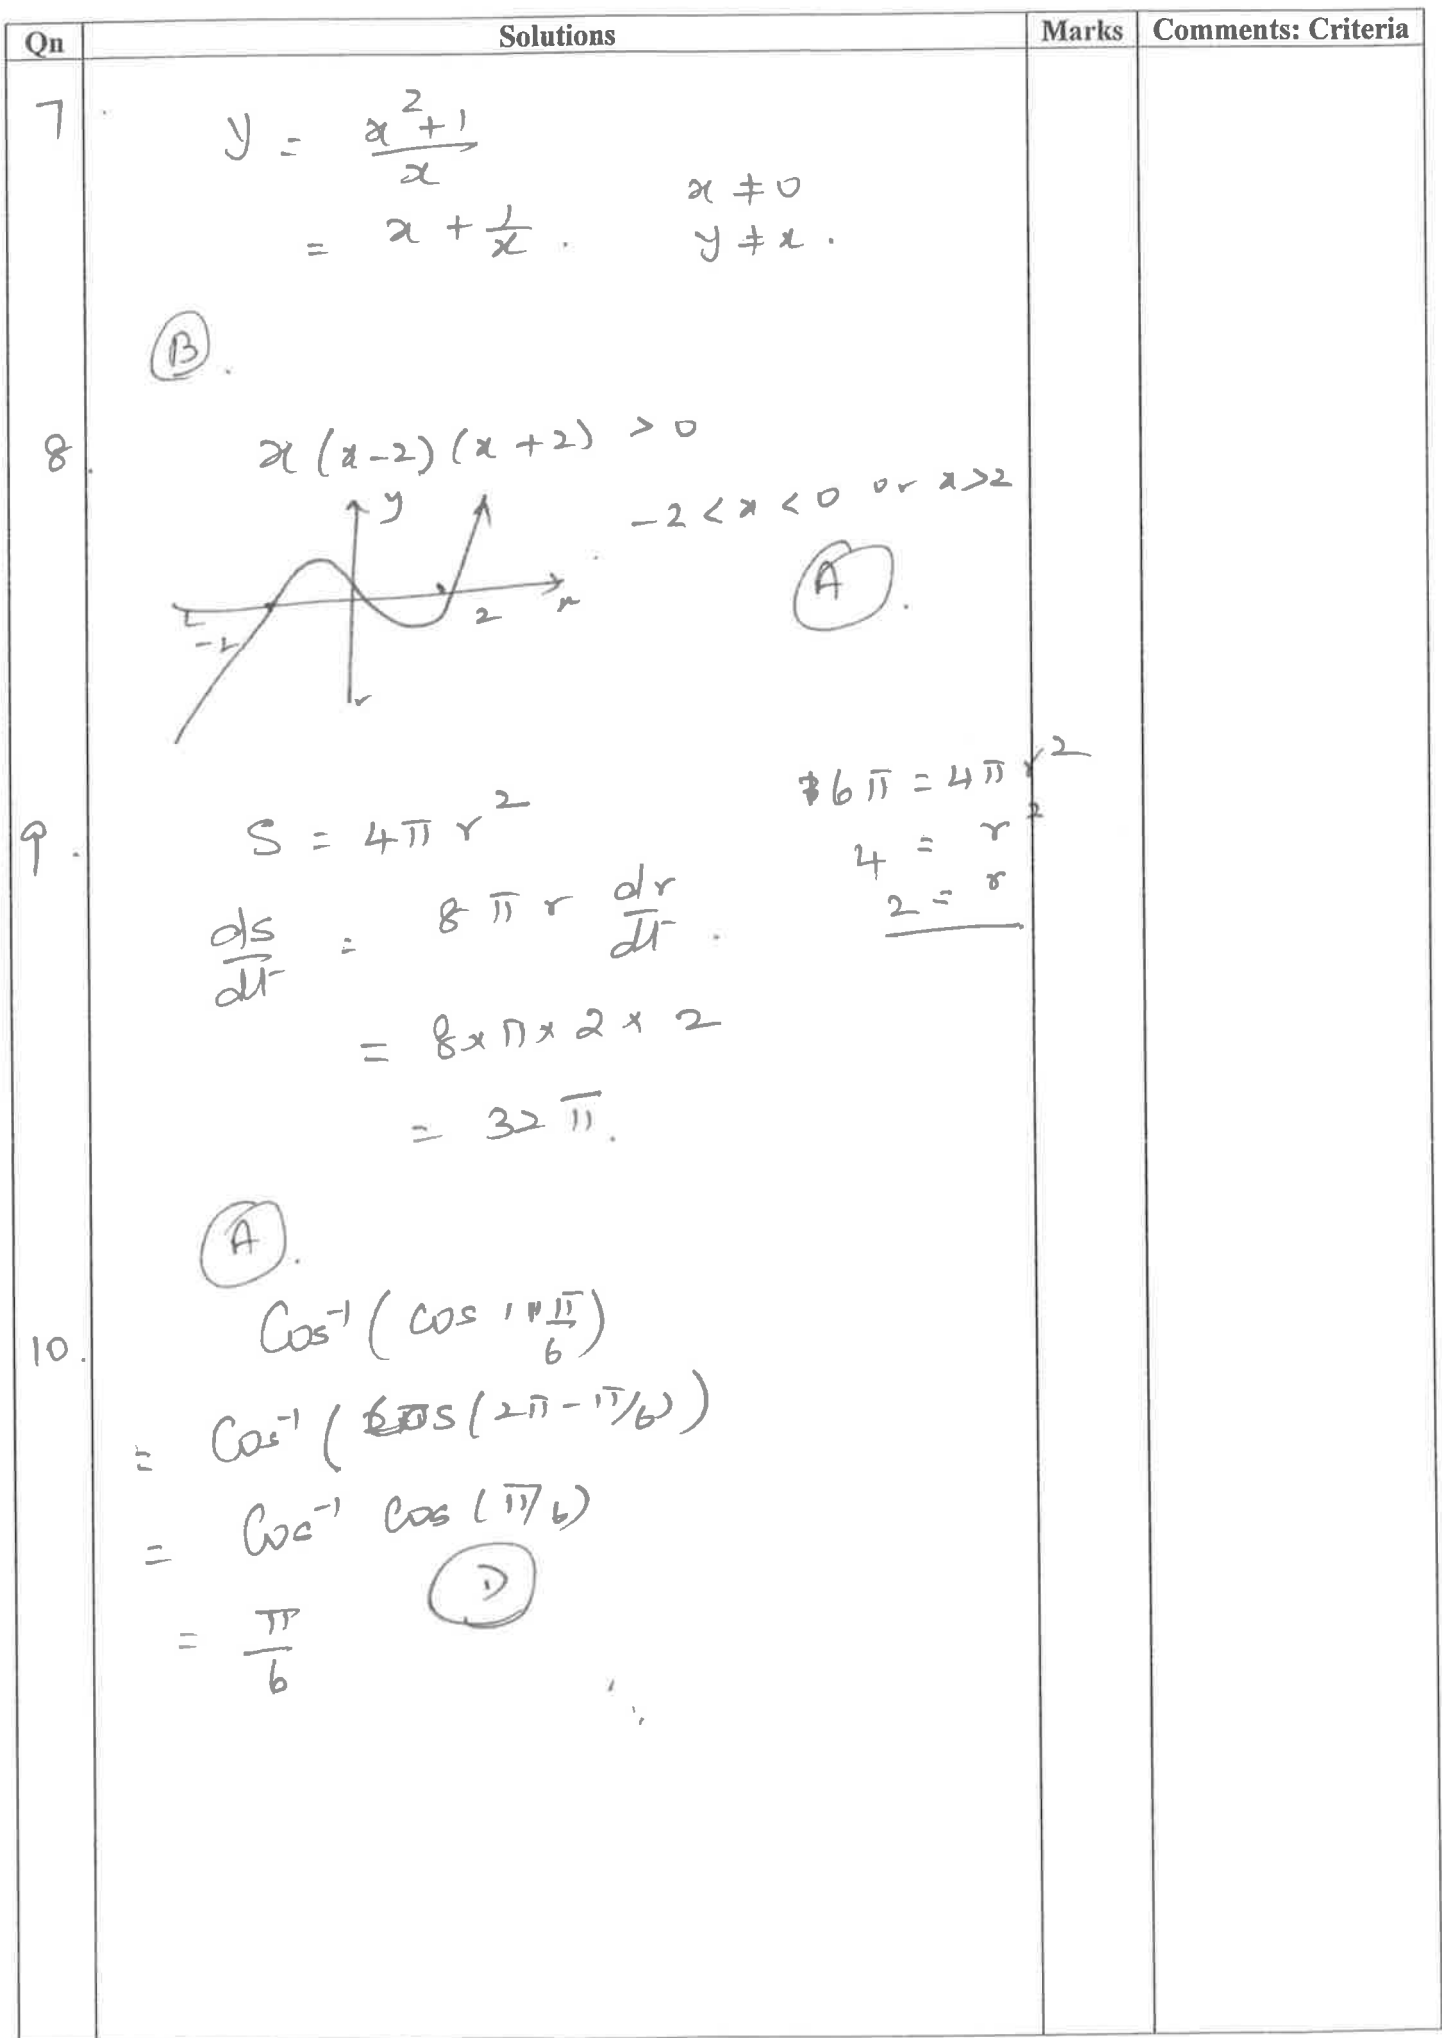 Qn Solutions Marks Comments: Criteria
7 y = \frac{x^2+1}{x}
= x + \frac{1}{x} . x ≠ 0
y ≠ x .
B .
8. x (x-2) (x+2) > 0
y -2 < x < 0 or x>2
x
2
A .
9. S = 4π r^2
16π = 4π r^2
4 = r^2
2 = r
\frac{ds}{dt} = 8 π r \frac{dr}{dt} .
= 8 x π x 2 x 2
= 32 π.
A .
10. Cos^{-1} ( cos 11\frac{π}{6} )
= Cos^{-1} ( cos (2π - π/6) )
= Cos^{-1} Cos ( π/6 )
D
= \frac{π}{6}